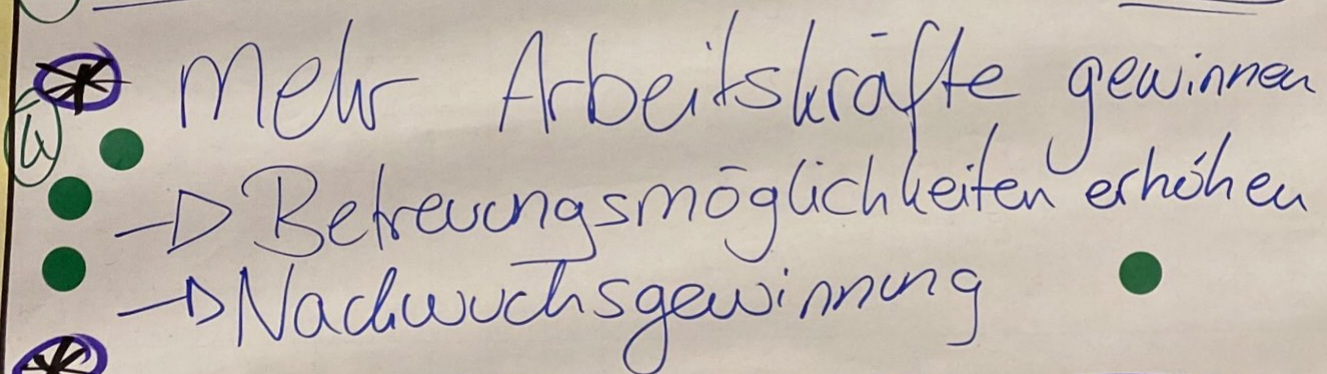 Mehr Arbeitskräfte gewinnen
4
→ Betreuungsmöglichkeiten erhöhen
→ Nachwuchsgewinnung